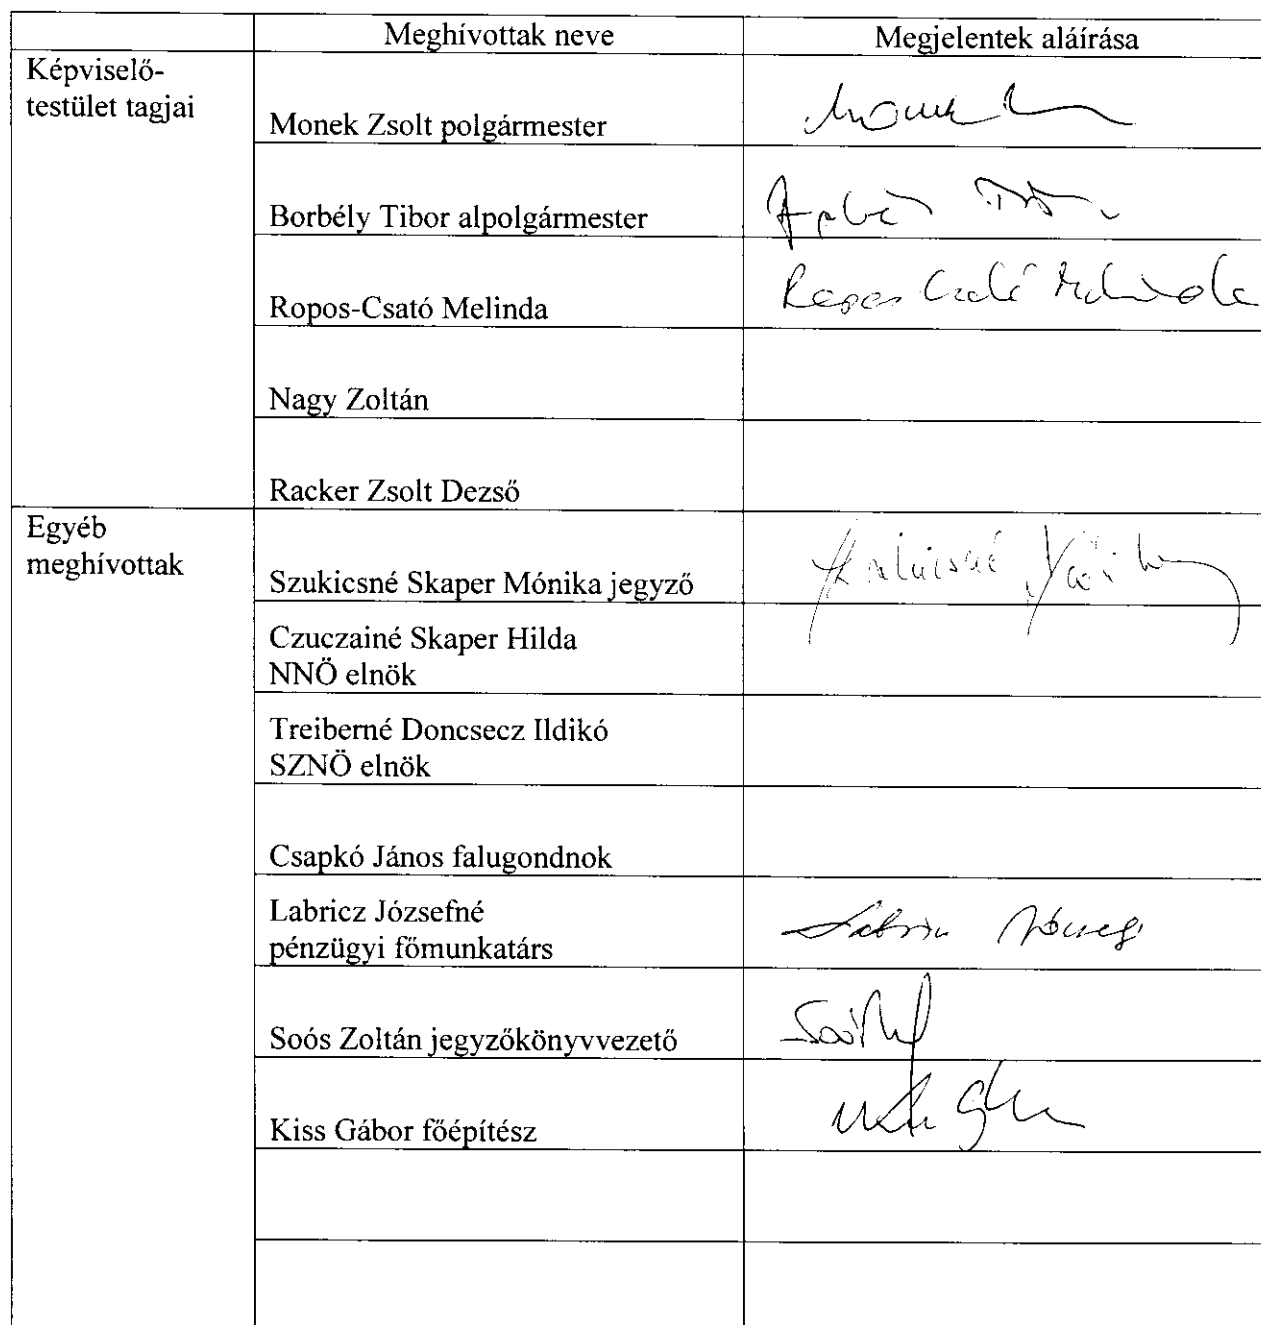 Meghívottak neve Megjelentek aláírása
Képviselő-
testület tagjai
Monek Zsolt polgármester
Borbély Tibor alpolgármester
Ropos-Csató Melinda
Nagy Zoltán
Racker Zsolt Dezső
Egyéb
meghívottak
Szukicsné Skaper Mónika jegyző
Czuczainé Skaper Hilda
NNÖ elnök
Treiberné Doncsecz Ildikó
SZNÖ elnök
Csapkó János falugondnok
Labricz Józsefné
pénzügyi főmunkatárs
Soós Zoltán jegyzőkönyvvezető
Kiss Gábor főépítész